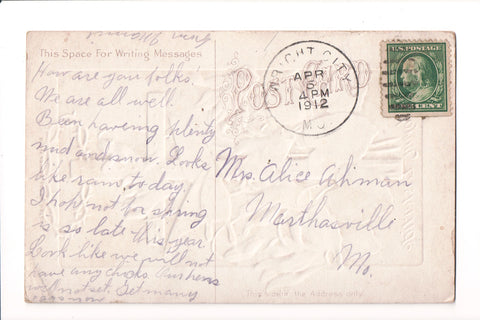 This Space For Writing Messages
How are you folks.
We are all well.
Been having plenty
mud and snow. Looks
like rain to day.
I hop not for spring
is so late this year
Look like we will not
have any chicks. Our hens
will not set. Get many
eggs now
from
Post Card
WRIGHT CITY
APR
5
4 PM
1912
MO.
U.S. POSTAGE
CENT
Mrs. Alice Ahmann
Marthasville
Mo.
This side is for the Address only.